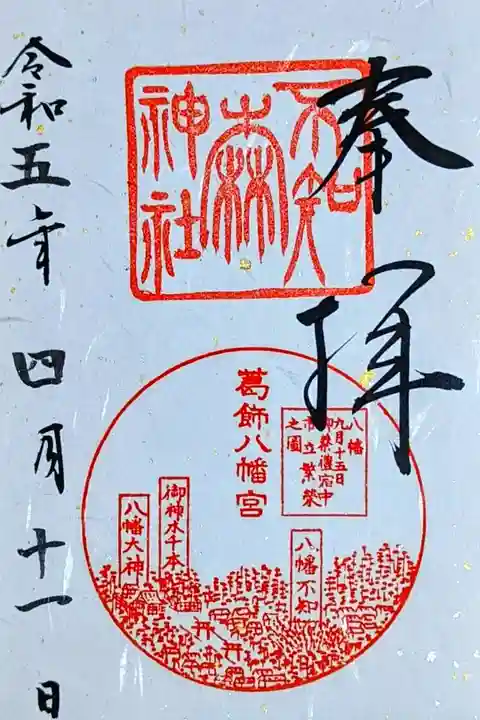 奉拝
不知
森
神社
葛飾八幡宮
八幡
九月十五日
御祭禮宿中
市立繁榮
之圖
八幡不知
御神木千本
八幡大神
令和五年四月十一日